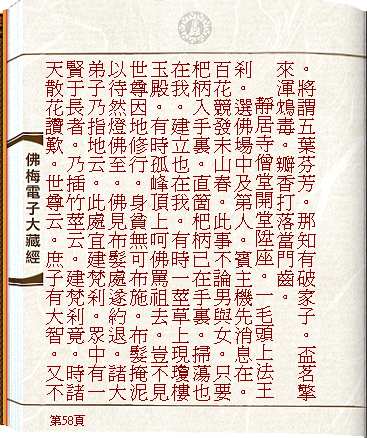 。將謂五葉芬芳。那知有破家子。盃茗擎
來渾鴆毒。瓣香打落當門齒。
靜居寺僧堂開堂陞座。一毛頭上法王
剎。選佛場中及第人。賓主機先消息在。
百花競發末山春。此事不論男與女。只要
杷柄入手裏。直箇杷柄已在手裏。掃蕩也
在我。建立也在我。有時一莖草上現瓊樓
玉殿。有時孤峰頂上呵佛罵祖去。豈不見
世尊因地修行。身貧無可布施。布髮掩泥
以待然燈佛至。佛見布髮處遂約退。諸大
弟子乃指地云。此處宜建梵剎。眾中有一
賢于長者。乃插竹莖云。建梵剎竟。時諸
天散花讚歎。世尊云。庶子有大智。又不
佛梅電子大藏經
第58頁